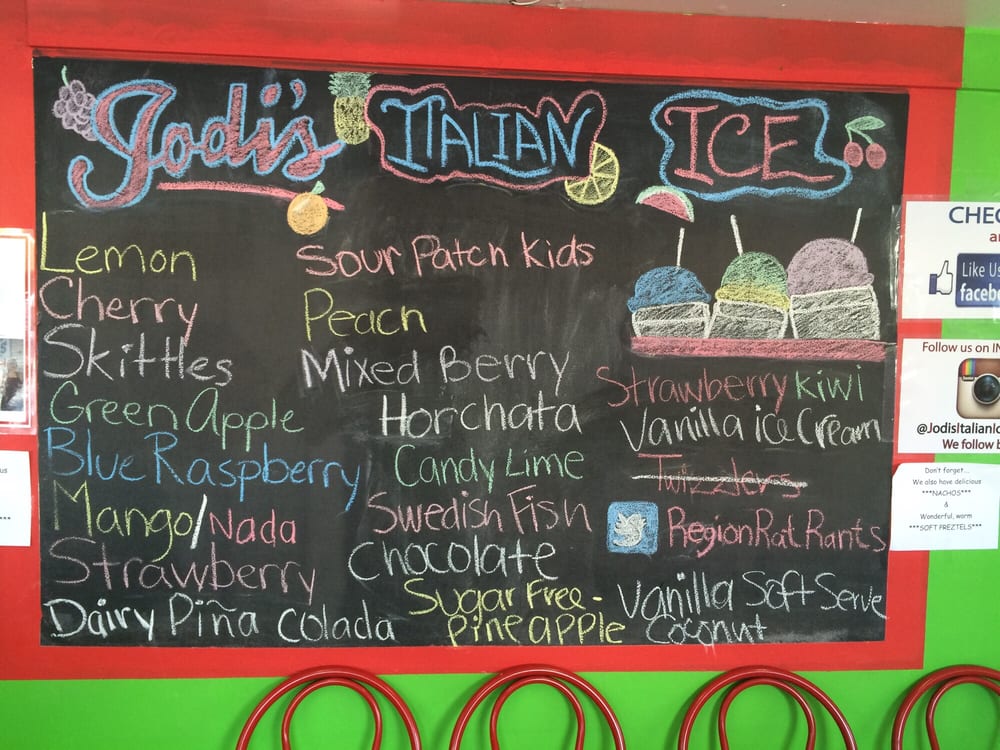 Jodi's ITALIAN ICE
Lemon
Cherry
Skittles
Green Apple
Blue Raspberry
Mango/Nada
Strawberry
Dairy Piña Colada
Sour Patch Kids
Peach
Mixed Berry
Horchata
Candy Lime
Swedish Fish
Chocolate
Sugar Free -
Pineapple
Strawberry Kiwi
Vanilla ice Cream
Twizzlers
RegionRat Rants
Vanilla Soft Serve
Coconut
CHEC
Like Us
facebo
Follow us on IN
@JodisItalianIc
We follow b
Don't forget...
We also have delicious
***NACHOS***
&
Wonderful, warm
***SOFT PREZTELS***